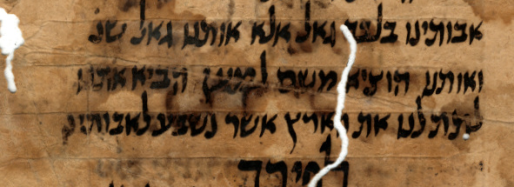 אבותינו בלבד גאל אלא אותנו גאל שנ
ואותנו הוציא משם למען הביא אותנו
לתת לנו את הארץ אשר נשבע לאבותינו
לפיכך